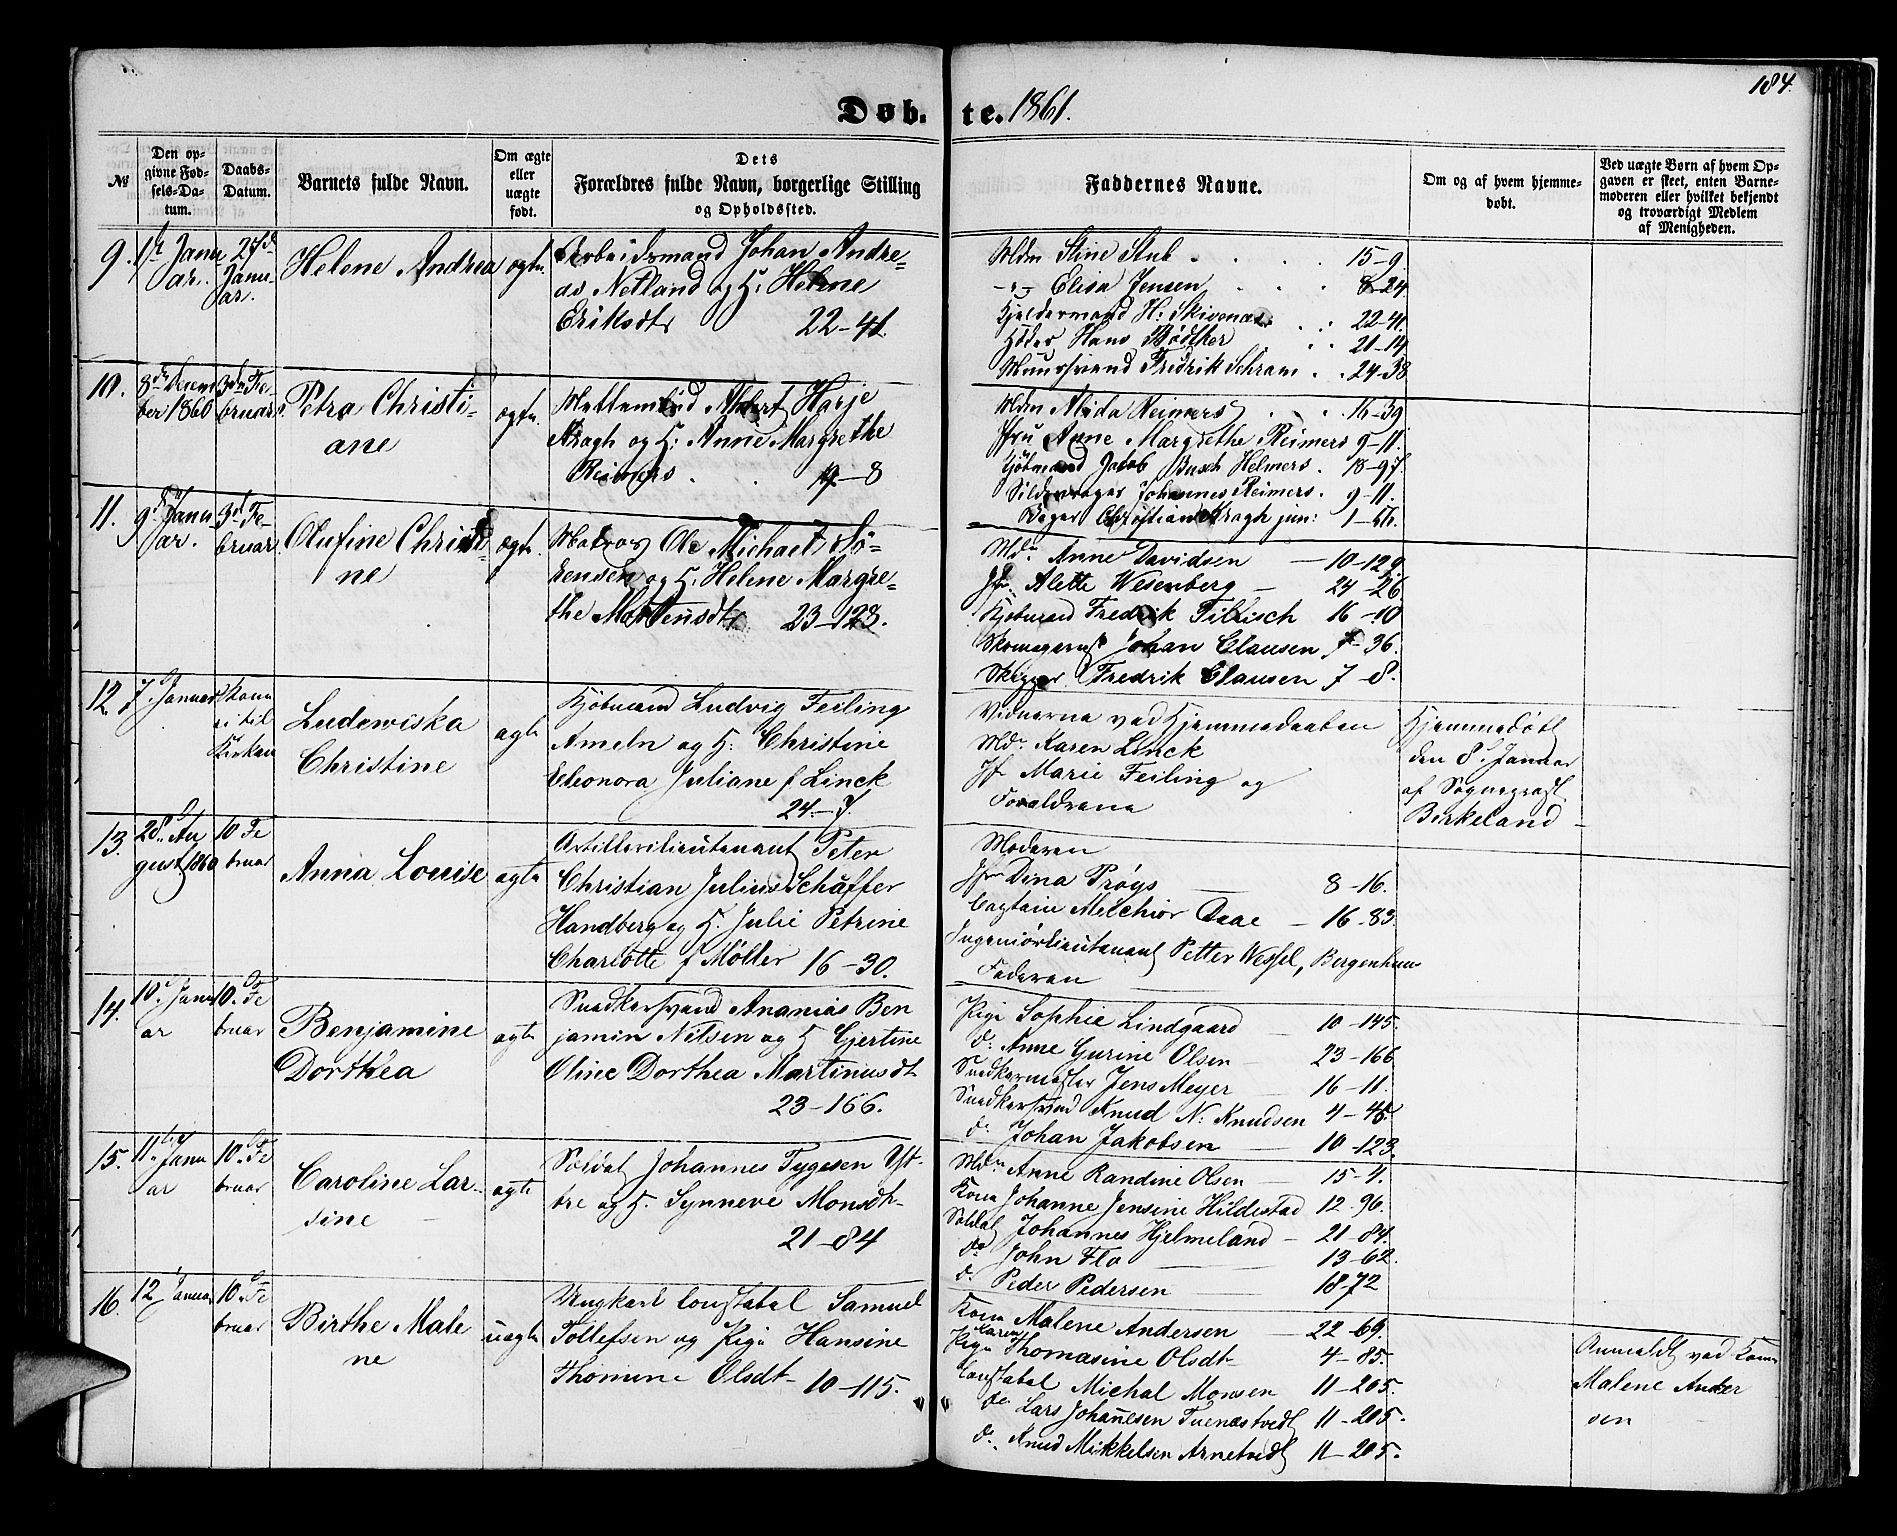 184.
Døb- te. 1861.
№
Den op-
givne Fød-
sels-Da-
tum.
Daabs-
Datum.
Barnets fulde Navn.
Om ægte
eller
uægte
født.
Dets
Forældres fulde Navn, borgerlige Stilling
og Opholdssted.
Faddernes Navne.
Om og af hvem hjemme-
døbt.
Ved uægte Børn af hvem Op-
gaven er skeet, enten Barne-
moderen eller hvilket bekjendt
og troværdigt Medlem
af Menigheden.
9.
Janu
ar.
27de
Janu-
ar.
Helene Andrea
ægte.
Arbeidsmand Johan Andre-
as Netland og H. Helene
Eriksdtr 22-41
Mdm Stine Stub 15-9.
Elisa Jensen 8-24
H: Skivenæs 22-41.
Hans Bødtker 21-14
Muursvend Fredrik Schram 24-38
10.
8de Decem
ber 1860
3die Fe-
bruar.
Petra Christi-
ane
ægte.
Albert Harje
Kragh og H: Anne Margrethe
Reimers 19-8
Mdm Alida Reimers 16-39
Jfru Anne Margrethe Reimers 9-11.
Kjøbmand Jacob Busch Helmers. 18-97.
Johannes Reimers. 9-11.
Christian Kragh jun: 1-
11.
9de Janu-
ar.
3die Fe-
bruar
Olufine Christi-
ne
ægte.
Matros Ole Michael Sø-
rensen og H. Helene Margre-
the Mortensdtr 23-123.
Md. Anne Davidsen 10-129
Jfr. Alette Wesenberg 24-26
Kjøbmand Fredrik Tillisch 16-10
Johan Clausen 7-36.
Skipper Fredrik Clausen 7-8.
12.
7. Januar
Kom
ei til
Kirken
Ludewiska
Christine
ægte
Kjøbmand Ludvig Feiling
Ameln og H. Christine
Eleonora Juliane f Linck
24-7.
Vidnerne ved Hjemmedaaben
Md. Karen Linck
Jfr Marie Feiling og
Forældrene
Hjemmedøbt
den 8. Januar
af Sogneprest
Birkeland
13.
28. Au
gust 1860
10 Fe
bruar
Anna Louise
ægte
Artillerilieutenant Peter
Christian Julius Schäffer
Handberg og H. Julie Petrine
Charlotte f Møller 16-30.
Moderen
Jfr Dina Prøys 8-16.
Captain Melchior Daae 16-83.
Ingeniørlieutenant Petter Wessel, Bergenhuus
Faderen
14.
10. Janu
ar
10. Fe
bruar
Benjamine
Dorthea
ægte
Snedkersvend Ananias Ben
jamin Nilsen og H Gjertine
Oline Dorthea Martinusdtr
23-166.
Pige Sophie Lindgaard 10-145.
d. Anne Gurine Olsen 23-166
Snedkermester Jens Meyer 16-11.
Snedkersvend Knud N: Knudsen 4-45.
d. Johan Jakobsen 10-123.
15.
11. Janu
ar
10. Fe
bruar
Caroline Lar-
sine
ægte
Soldat Johannes Tygesen Yt-
tre og H. Synneve Monsdtr
21-84
Md. Anne Randine Olsen 15-4.
Kone Johanne Jensine Hildestad 12-96.
Soldat Johannes Hjelmeland 21-84.
do John Flo 13-62.
d. Peder Pedersen 18-72
16.
12 Januar
10. Fe
bruar
Birthe Male
ne
uægte
Ungkarl Constabel Samuel
Tollefsen og Pige Hansine
Thomine Olsdtr 10-115.
Kone Malene Andersen 22-69.
Karen
Pige Thomasine Olsdtr 4-85.
Constabel Michal Monsen 11-205.
do Lars Johannesen Tuenæstvedt 11-205.
d. Knud Mikkelsen Arnetvedt 11-205.
Anmeldt ved Kone
Malene Ander
sen